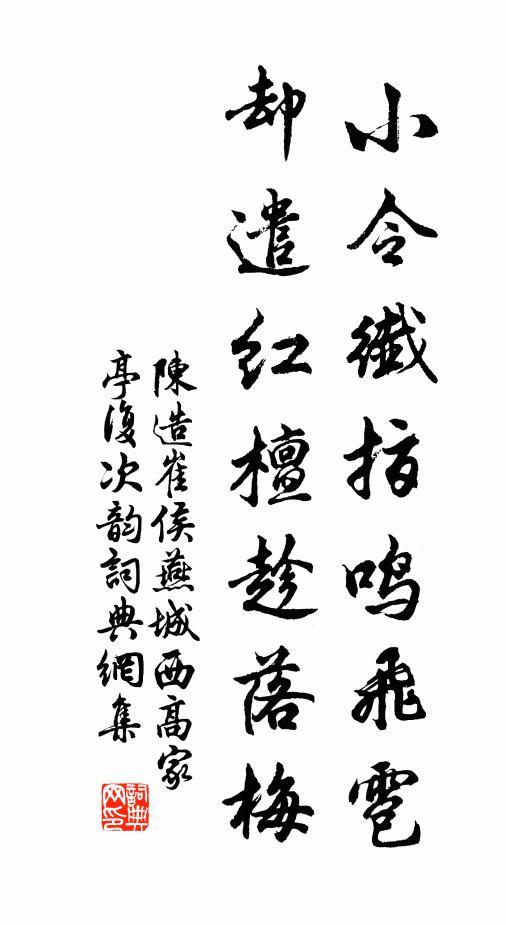 小令纖指鳴飛雹
却遣紅檀趁落梅
陳造崔侯燕城西高家
亭復次韵詞典網集
詞典网印